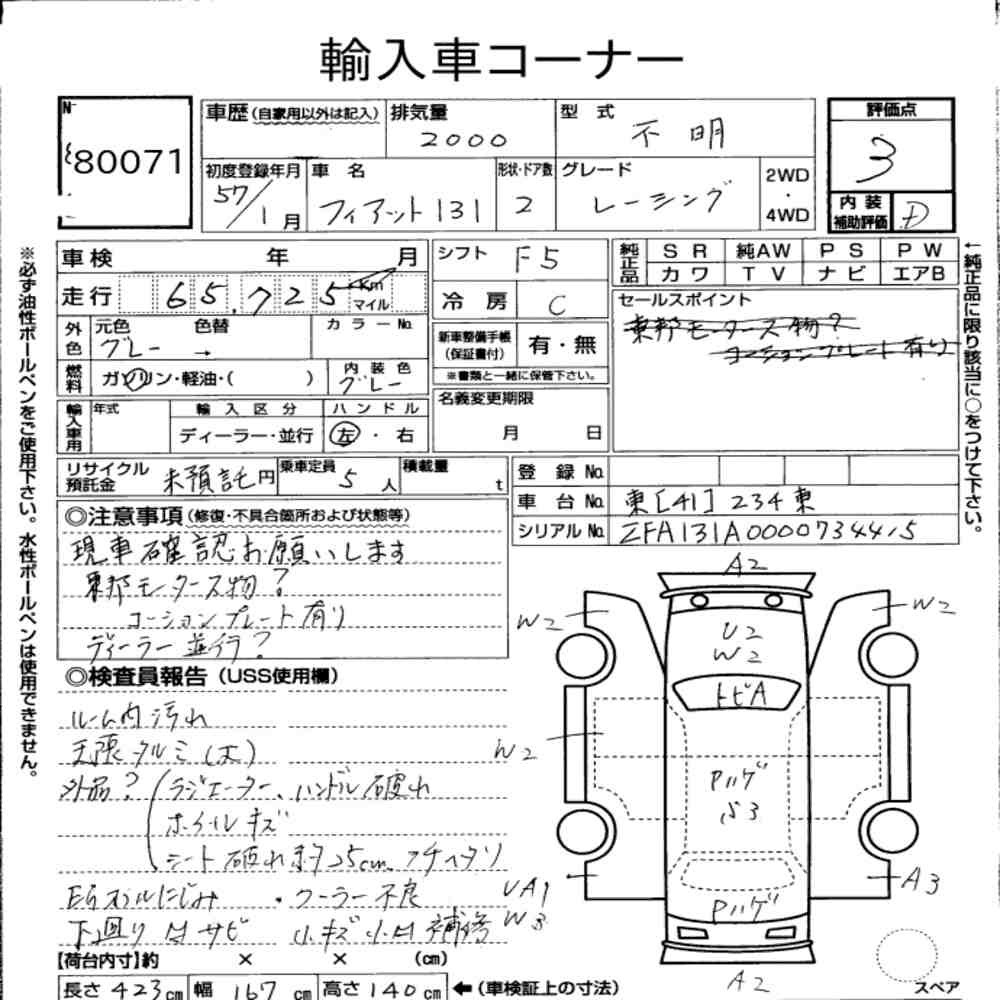 輸入車コーナー
No 80071
車歴(自家用以外は記入) 排気量 2000 型式 不明 評価点 3
初度登録年月 57/1月 車名 フィアット131 形状・ドア数 2 グレード レーシング 2WD・4WD 内装補助評価 D
車検 年 月 シフト F5 純正品 SR 純AW PS PW
カワ TV ナビ エアB
走行 65,725 km マイル 冷房 C セールスポイント
東邦モータース物?
コーションプレート有り
外色 元色 グレー 色替 → カラーNo.
新車整備手帳(保証書付) 有・無
※書類と一緒に保管下さい。
燃料 ガソリン・軽油・( ) 内装色 グレー
名義変更期限 月 日
輸入車用 年式 輸入区分 ディーラー・並行 ハンドル 左・右
リサイクル預託金 未預託円 乗車定員 5人 積載量 t
登録No.
車台No. 東[41]234東
シリアルNo. ZFA131A0000734415
◎注意事項(修復・不具合箇所および状態等)
現車確認お願いします
東邦モータース物?
コーションプレート有り
ディーラー並行?
◎検査員報告(USS使用欄)
ルーム内汚れ
天張タルミ(大)
外品?(ラジエーター、ハンドル破れ
ホイールキズ
シート破れ 約25cm
EGオイルにじみ ・クーラー不良
下廻りサビ 小キズ小凹補修
【荷台内寸】約 × × (cm)
長さ 423cm 幅 167cm 高さ 140cm ←(車検証上の寸法)
A2
W2 W2
U2
W2
トビA
W2
Pハゲ
S3
A3
UA1
W3
Pハゲ
A2
スペア
※必ず油性ボールペンをご使用下さい。水性ボールペンは使用できません。
←純正品に限り該当に○をつけて下さい。